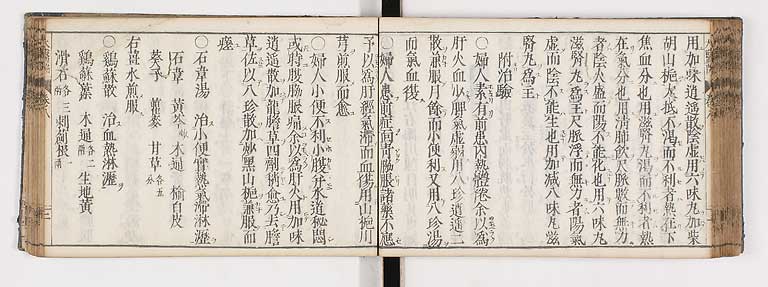 用加味逍遥散陰虚用六味丸加柴
胡山梔大抵不渴而不利者熱在下
焦血分也用滋腎丸渴而不利者熱
在氣分也用清肺飲尺脈數而無力
者陰火盛而陽不能化也用六味丸
滋腎丸為主尺脈浮而無力者陽氣
虚而陰不能生也用加減八味丸滋
腎丸為主
附治驗
〇婦人素有前患内熱體倦余以為
肝火血少脾氣虚弱用八珍逍遥二
散兼服月餘而小便利又用八珍湯
而氣血復
〇婦人患前症
予以為肝經氣滯而血傷用山梔川
芎煎服而愈
〇婦人小便不利小腹并水道秘悶
或時腹脇脹痛余以為肝火用加味
逍遥散加龍膽草四劑稍愈乃去膽
草佐以八珍散加炒黑山梔兼服而
痊
〇石韋湯 治小便實熱氣滯淋瀝
石韋 黄芩 木通 榆白皮
葵子 瞿麥 甘草各五分
右薑水煎服
〇鷄蘇散 治血熱淋瀝
鷄蘇葉 木通各二兩 生地黄
滑石各三兩 刺薊根一兩